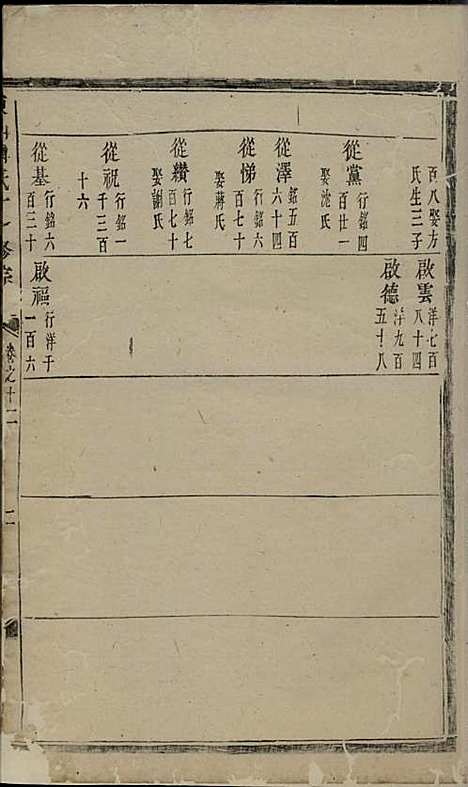 百八娶方
氏生三子
從黨 行銘四
百廿一
娶沈氏
從澤 銘五百
六十四
從悌 行銘六
百七十
娶蔣氏
從纘 行銘七
百七十
娶謝氏
從祝 行銘一
千三百
十六
從基 行銘六
百三十
啟雲 洋七百
八十四
啟德 洋九百
五十八
啟福 行洋千
一百六
卷之十二
二